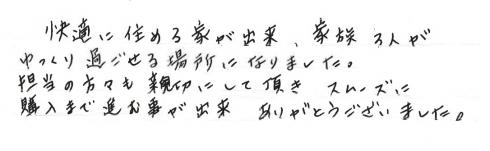 快適に住める家が出来、家族3人が
ゆっくり過ごせる場所になりました。
担当の方々も親切にして頂き スムーズに
購入まで進む事が出来 ありがとうございました。